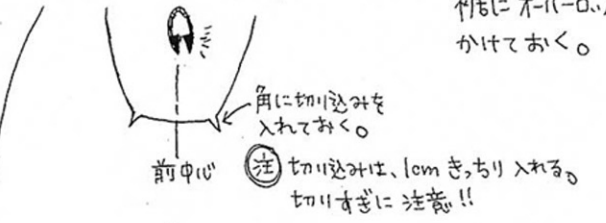 オーバーロッ
かけておく。
角に切り込みを
入れておく。
前中心
注 切り込みは、1cm きっちり 入れる。
切りすぎに 注意!!